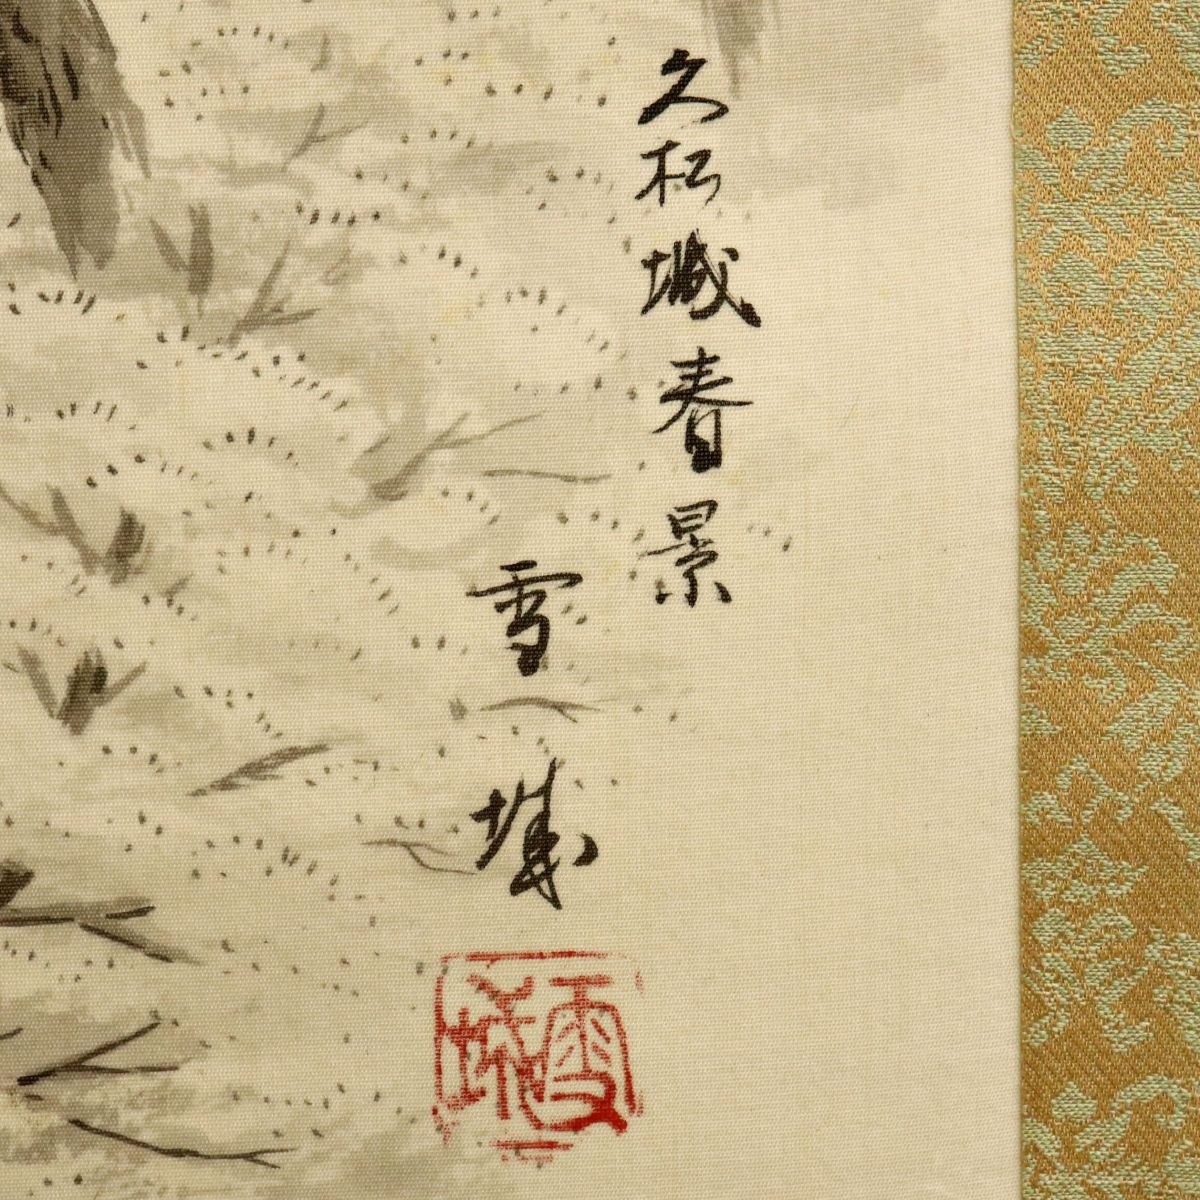 久松城春景
雪城
雪城